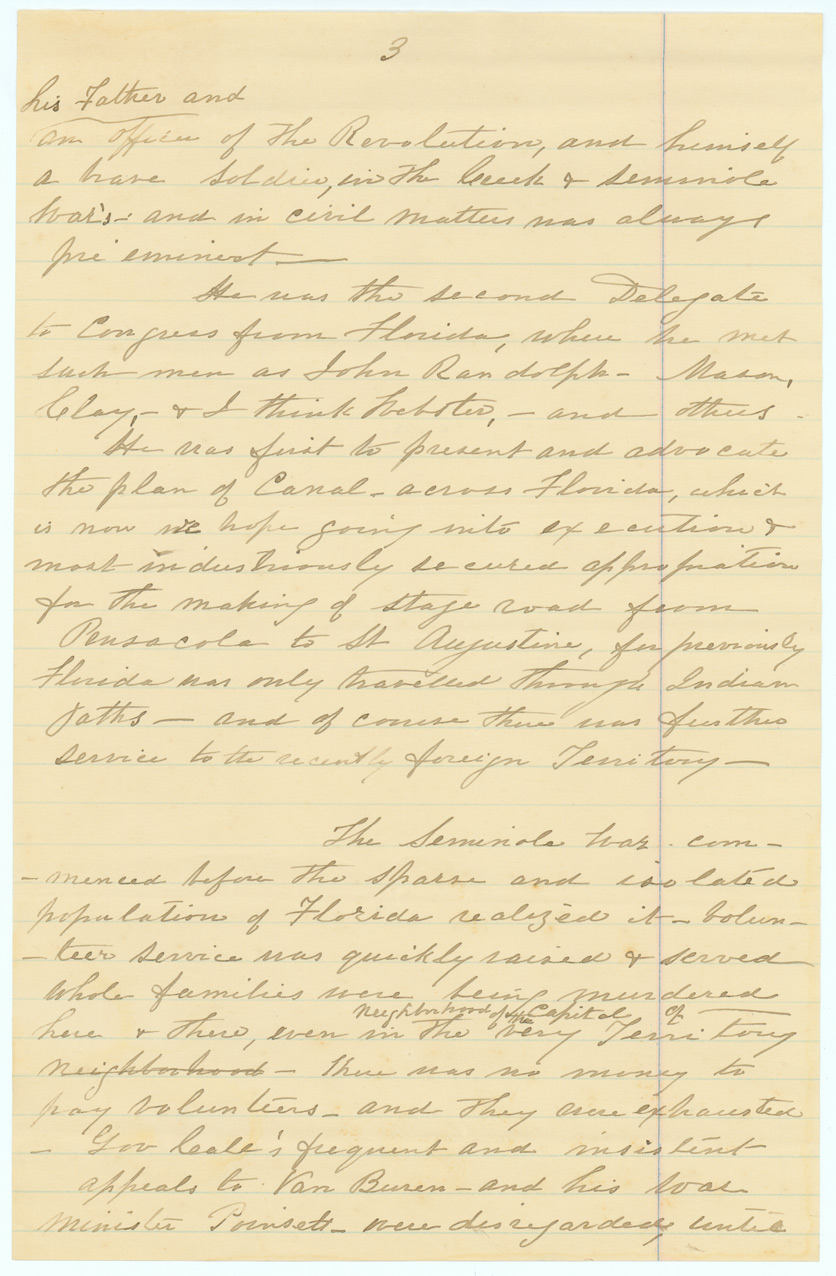 3
his Father and
an officer of the Revolution, and himself
a brave soldier, in the Creek & Seminole
War's - and in civil matters was always
pre eminent —
He was the second Delegate
to Congress from Florida, where he met
such men as John Randolph - Mason,
Clay, - & I think Webster, - and others -
He was first to present and advocate
the plan of Canal - across Florida, which
is now we hope going into execution &
most industriously secured appropriation
for the making of stage road from
Pensacola to St Augustine, for previously
Florida was only travelled through Indian
paths — and of course there was further
service to the recently foreign Territory —
The Seminole War com -
- menced before the sparse and isolated
population of Florida realized it - Volun -
- teer service was quickly raised & served
whole families were being murdered
neighborhood of the Capital of
here & there, even in the very Territory
neighborhood - there was no money to
pay volunteers - and they were exhausted
- Gov Call's frequent and insistent
appeals to Van Buren - and his War
Minister Poinsett - were disregarded, until